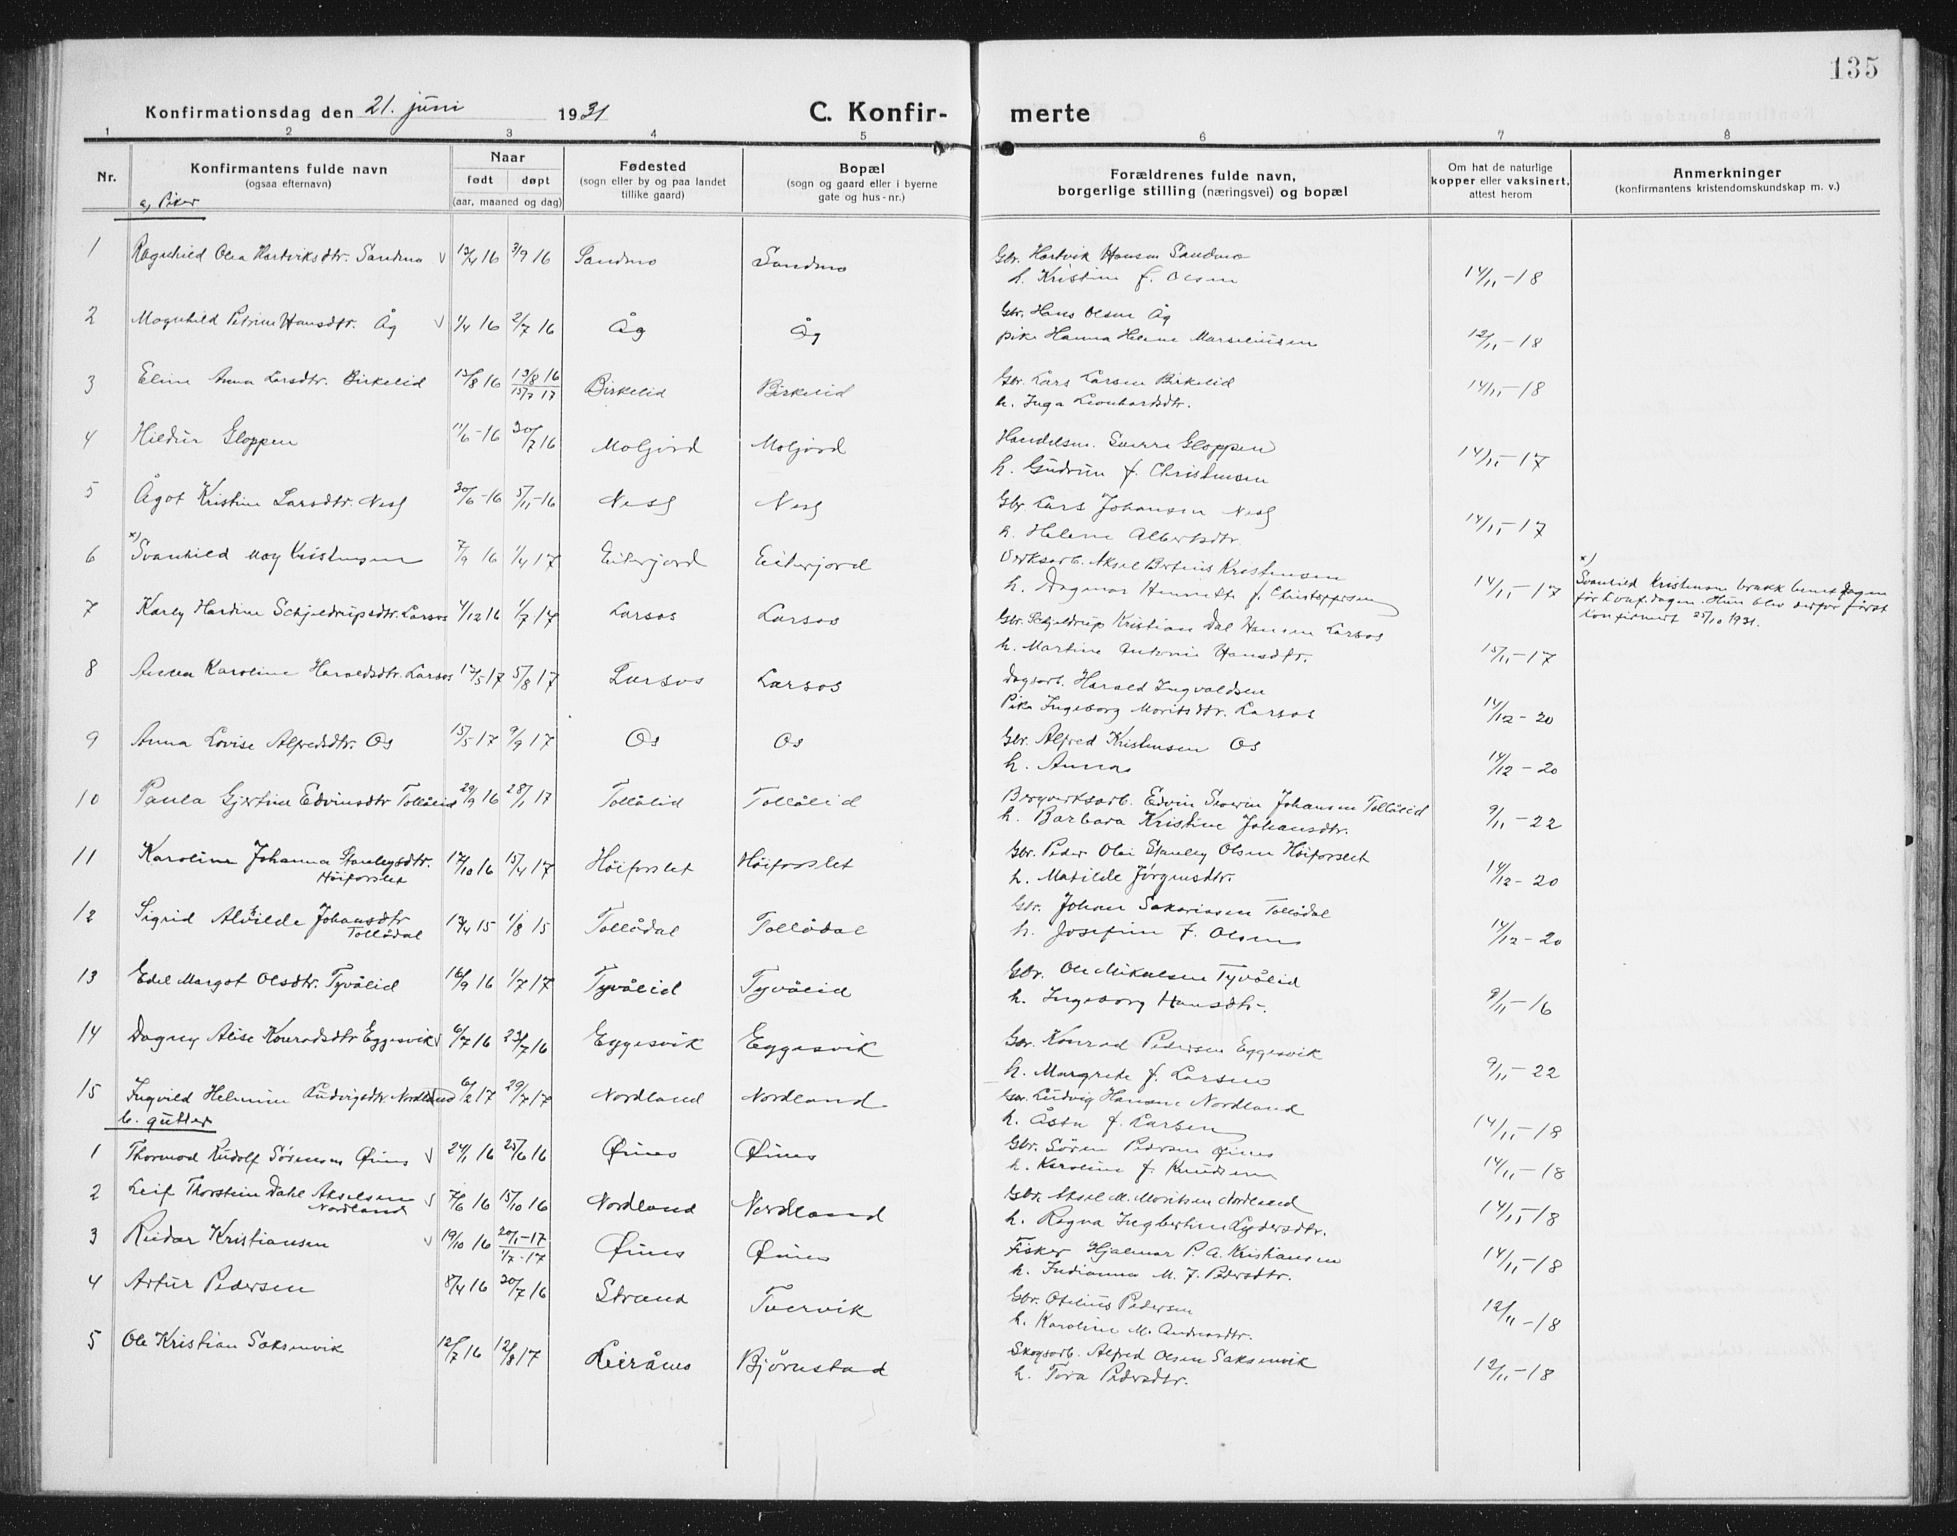 135
Konfirmationsdag den 21. juni 1931
C. Konfirmerte
1 2 3 4 5 6 7 8
Nr.
Konfirmantens fulde navn
(ogsaa efternavn)
Naar
født døpt
(aar, maaned og dag)
Fødested
(sogn eller by og paa landet
tillike gaard)
Bopæl
(sogn og gaard eller i byerne
gate og hus-nr.)
Forældrenes fulde navn,
borgerlige stilling (næringsvei) og bopæl
Om hat de naturlige
kopper eller vaksinert,
attest herom
Anmerkninger
(konfirmantens kristendomskundskap m. v.)
a, Piker
1 Ragnhild Olea Hartviksdtr. Sandmo 3/9 16 Sandmo Sandmo Gbr. Hartvik Hansen Sandmo
h. Kristine f. Olsen 14/11-18
2 Magnhild Petrine Hansdtr. Åg 1/4 16 2/7 16 Åg Åg Gbr. Hans Olsen Åg
pike Hanna Helene Marseliussen 12/11-18
3 Eline Anna Larsdtr. Birkelid 13/8 16 15/7 17 Birkelid Birkelid Gbr. Lars Larsen Birkelid
h. Inga Leonhardsdtr. 14/11-18
4 Hildur Gloppen 11/6-16 30/7 16 Moljord Moljord Handelsm. Sverre Gloppen
h. Gudrun f. Christensen 14/11-17
5 Ågot Kristine Larsdtr. Nesj 30/6-16 5/11-16 Nesj Nesj Gbr Lars Johansen Nesj
h. Helene Albertsdtr. 14/11-17
6 x) Svanhild May Kristensen 7/9 16 1/4 17 Eiterjord Eiterjord Verksarb. Aksel Bertius Kristensen
h. Dagmar Henriette f. Christoffersen 14/11-17
x)
Svanhild Kristensen brakk benet dagen
før konf.dagen. Hun blev derfor først
konfirmert 25/10 1931.
7 Karly Hardine Schjeldrupsdtr. Larsos 4/12 16 1/7 17 Larsos Larsos Gbr. Schjeldrup Kristian Dal Hansen Larsos
h. Martine Antonie Hansdtr. 15/11-17
8 Anna Karoline Haraldsdtr. Larsos 17/5 17 5/8 17 Larsos Larsos Dagsarb. Harald Ingvaldsen
Pike Ingeborg Moritsdtr. Larsos 14/12-20
9 Anna Lovise Alfredsdtr. Os 15/5 17 9/9 17 Os Os Gbr. Alfred Kristensen Os
h. Anna 14/12-20
10 Paula Gjertine Edvinsdtr Tollålid 29/9 16 28/1 17 Tollålid Tollålid Bergverksarb. Edvin Severin Johansen Tollålid
h. Barbara Kristine Johansdtr. 9/11-22
11 Karoline Johanna Stanleysdtr.
Høiforslet 17/10 16 15/4 17 Høiforslet Høiforslet Gbr. Peder Olai Stanley Olsen Høiforslet
h. Matilde Jørgensdtr. 14/12-20
12 Sigrid Alvilde Johansdtr
Tollådal 1/8 15 Tollådal Tollådal Gbr. Johan Sakariassen Tollådal
h. Josefine f. Olsen 14/12-20
13 Edel Margot Olsdtr. Tyvålid 16/9 16 1/7 17 Tyvålid Tyvålid Gbr. Ole Mikalsen Tyvålid
h. Ingeborg Hansdtr. 9/11-16
14 Dagny Alise Konradsdtr Eggesvik 6/7 16 23/7 16 Eggesvik Eggesvik Gbr. Konrad Pedersen Eggesvik
h. Margrete f. Larsen 9/11-22
15 Ingvild Helmine Ludvigsdtr. Nordland 6/2 17 29/7 17 Nordland Nordland Gbr. Ludvig Hansen Nordland
h. Åsta f. Larsen 14/11-18
b. gutter
1 Thormod Rudolf Sørensen Øines 24/1 16 25/6 16 Øines Øines Gbr. Søren Pedersen Øines
h. Karoline f. Knudsen 14/11-18
2 Leif Thorstein Dahl Akselsen
Nordland 7/6 16 15/10 16 Nordland Nordland Gbr. Aksel M. Moritsen Nordland
h. Ragna Lydersdtr. 14/11-18
3 Reidar Kristiansen 19/10 16 20/1-17
1/7-17 Øines Øines Fisker Hjalmar P. A. Kristiansen
h. Indianna M. J. Pedersdtr. 14/11-18
4 Artur Pedersen 8/4 16 30/7 16 Strand Tvervik Gbr. Otelius Pedersen
h. Karoline M. Andreasdtr. 12/11-18
5 Ole Kristian Saksenvik 12/7 16 12/8 17 Leiråmo Bjørnstad Skogsarb. Alfred Olsen Saksenvik
h. Tora Pedersdtr. 12/11-18